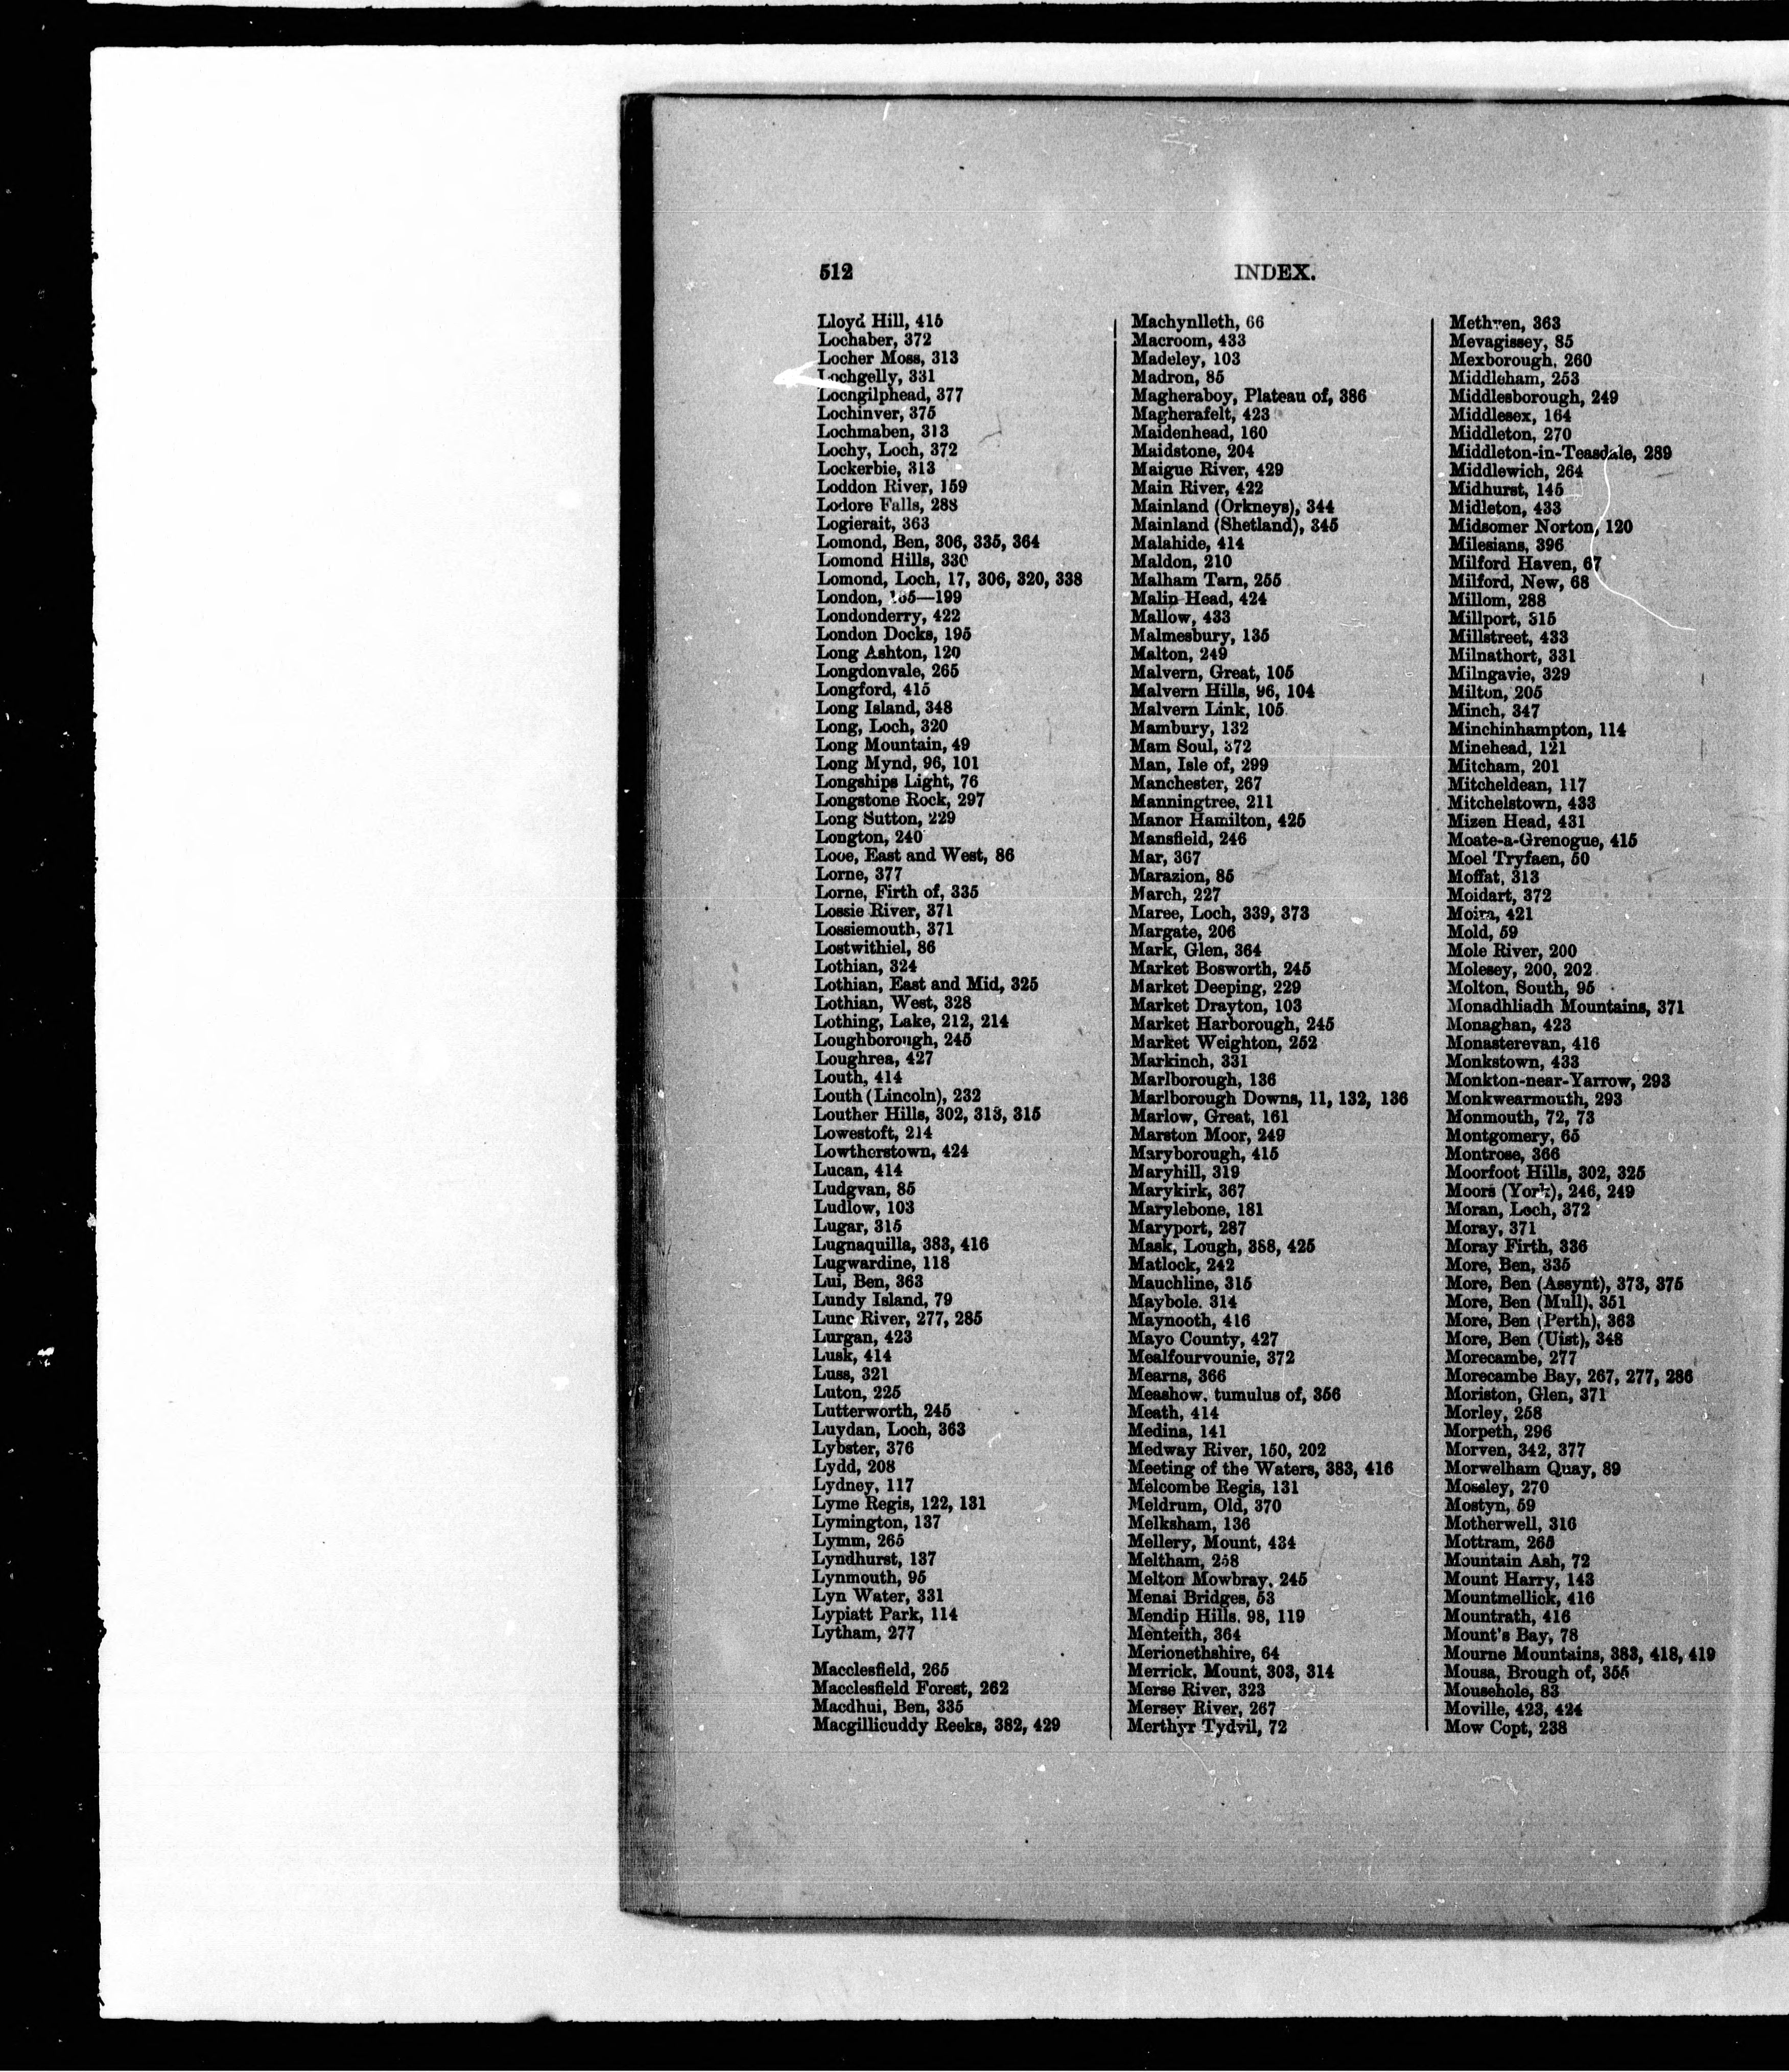 512
INDEX.
Lloyd Hill, 415
Lochaber, 372
Locher Moss, 313
Lochgelly, 331
Lochgilphead, 377
Lochinver, 375
Lochmaben, 313
Lochy, Loch, 372
Lockerbie, 313
Loddon River, 159
Lodore Falls, 288
Logierait, 363
Lomond, Ben, 306, 335, 364
Lomond Hills, 330
Lomond, Loch, 17, 306, 320, 338
London, 165—199
Londonderry, 422
London Docks, 195
Long Ashton, 120
Longdonvale, 265
Longford, 415
Long Island, 348
Long, Loch, 320
Long Mountain, 49
Long Mynd, 96, 101
Longships Light, 76
Longstone Rock, 297
Long Sutton, 229
Longton, 240
Looe, East and West, 86
Lorne, 377
Lorne, Firth of, 335
Lossie River, 371
Lossiemouth, 371
Lostwithiel, 86
Lothian, 324
Lothian, East and Mid, 325
Lothian, West, 328
Lothing, Lake, 212, 214
Loughborough, 245
Loughrea, 427
Louth, 414
Louth (Lincoln), 232
Louther Hills, 302, 313, 315
Lowestoft, 214
Lowtherstown, 424
Lucan, 414
Ludgvan, 85
Ludlow, 103
Lugar, 315
Lugnaquilla, 383, 416
Lugwardine, 118
Lui, Ben, 363
Lundy Island, 79
Lune River, 277, 285
Lurgan, 423
Lusk, 414
Luss, 321
Luton, 225
Lutterworth, 245
Luydan, Loch, 363
Lybster, 376
Lydd, 208
Lydney, 117
Lyme Regis, 122, 131
Lymington, 137
Lymm, 265
Lyndhurst, 137
Lynmouth, 95
Lyn Water, 331
Lypiatt Park, 114
Lytham, 277
Macclesfield, 265
Macclesfield Forest, 262
Macdhui, Ben, 335
Macgillicuddy Reeks, 382, 429
Machynlleth, 66
Macroom, 433
Madeley, 103
Madron, 85
Magheraboy, Plateau of, 386
Magherafelt, 423
Maidenhead, 160
Maidstone, 204
Maigue River, 429
Main River, 422
Mainland (Orkneys), 344
Mainland (Shetland), 345
Malahide, 414
Maldon, 210
Malham Tarn, 255
Malin Head, 424
Mallow, 433
Malmesbury, 135
Malton, 249
Malvern, Great, 105
Malvern Hills, 96, 104
Malvern Link, 105
Mambury, 132
Mam Soul, 372
Man, Isle of, 299
Manchester, 267
Manningtree, 211
Manor Hamilton, 425
Mansfield, 246
Mar, 367
Marazion, 85
March, 227
Maree, Loch, 339, 373
Margate, 206
Mark, Glen, 364
Market Bosworth, 245
Market Deeping, 229
Market Drayton, 103
Market Harborough, 245
Market Weighton, 252
Markinch, 331
Marlborough, 136
Marlborough Downs, 11, 132, 136
Marlow, Great, 161
Marston Moor, 249
Maryborough, 415
Maryhill, 319
Marykirk, 367
Marylebone, 181
Maryport, 287
Mask, Lough, 388, 425
Matlock, 242
Mauchline, 315
Maybole, 314
Maynooth, 416
Mayo County, 427
Mealfourvounie, 372
Mearns, 366
Meashow, tumulus of, 356
Meath, 414
Medina, 141
Medway River, 150, 202
Meeting of the Waters, 383, 416
Melcombe Regis, 131
Meldrum, Old, 370
Melksham, 136
Mellery, Mount, 434
Meltham, 258
Melton Mowbray, 245
Menai Bridges, 53
Mendip Hills, 98, 119
Menteith, 364
Merionethshire, 64
Merrick, Mount, 303, 314
Merse River, 323
Mersey River, 267
Merthyr Tydvil, 72
Methven, 363
Mevagissey, 85
Mexborough, 260
Middleham, 253
Middlesborough, 249
Middlesex, 164
Middleton, 270
Middleton-in-Teasdale, 289
Middlewich, 264
Midhurst, 145
Midleton, 433
Midsomer Norton, 120
Milesians, 396
Milford Haven, 67
Milford, New, 68
Millom, 288
Millport, 315
Millstreet, 433
Milnathort, 331
Milngavie, 329
Milton, 205
Minch, 347
Minchinhampton, 114
Minehead, 121
Mitcham, 201
Mitcheldean, 117
Mitchelstown, 433
Mizen Head, 431
Moate-a-Grenogue, 415
Moel Tryfaen, 50
Moffat, 313
Moidart, 372
Moira, 421
Mold, 59
Mole River, 200
Molesey, 200, 202
Molton, South, 95
Monadhliadh Mountains, 371
Monaghan, 423
Monasterevan, 416
Monkstown, 433
Monkton-near-Yarrow, 293
Monkwearmouth, 293
Monmouth, 72, 73
Montgomery, 65
Montrose, 366
Moorfoot Hills, 302, 325
Moors (York), 246, 249
Moran, Loch, 372
Moray, 371
Moray Firth, 336
More, Ben, 335
More, Ben (Assynt), 373, 375
More, Ben (Mull), 351
More, Ben (Perth), 363
More, Ben (Uist), 348
Morecambe, 277
Morecambe Bay, 267, 277, 286
Moriston, Glen, 371
Morley, 258
Morpeth, 296
Morven, 342, 377
Morwelham Quay, 89
Mossley, 270
Mostyn, 59
Motherwell, 316
Mottram, 265
Mountain Ash, 72
Mount Harry, 143
Mountmellick, 416
Mountrath, 416
Mount's Bay, 78
Mourne Mountains, 383, 418, 419
Mousa, Brough of, 355
Mousehole, 83
Moville, 423, 424
Mow Copt, 238